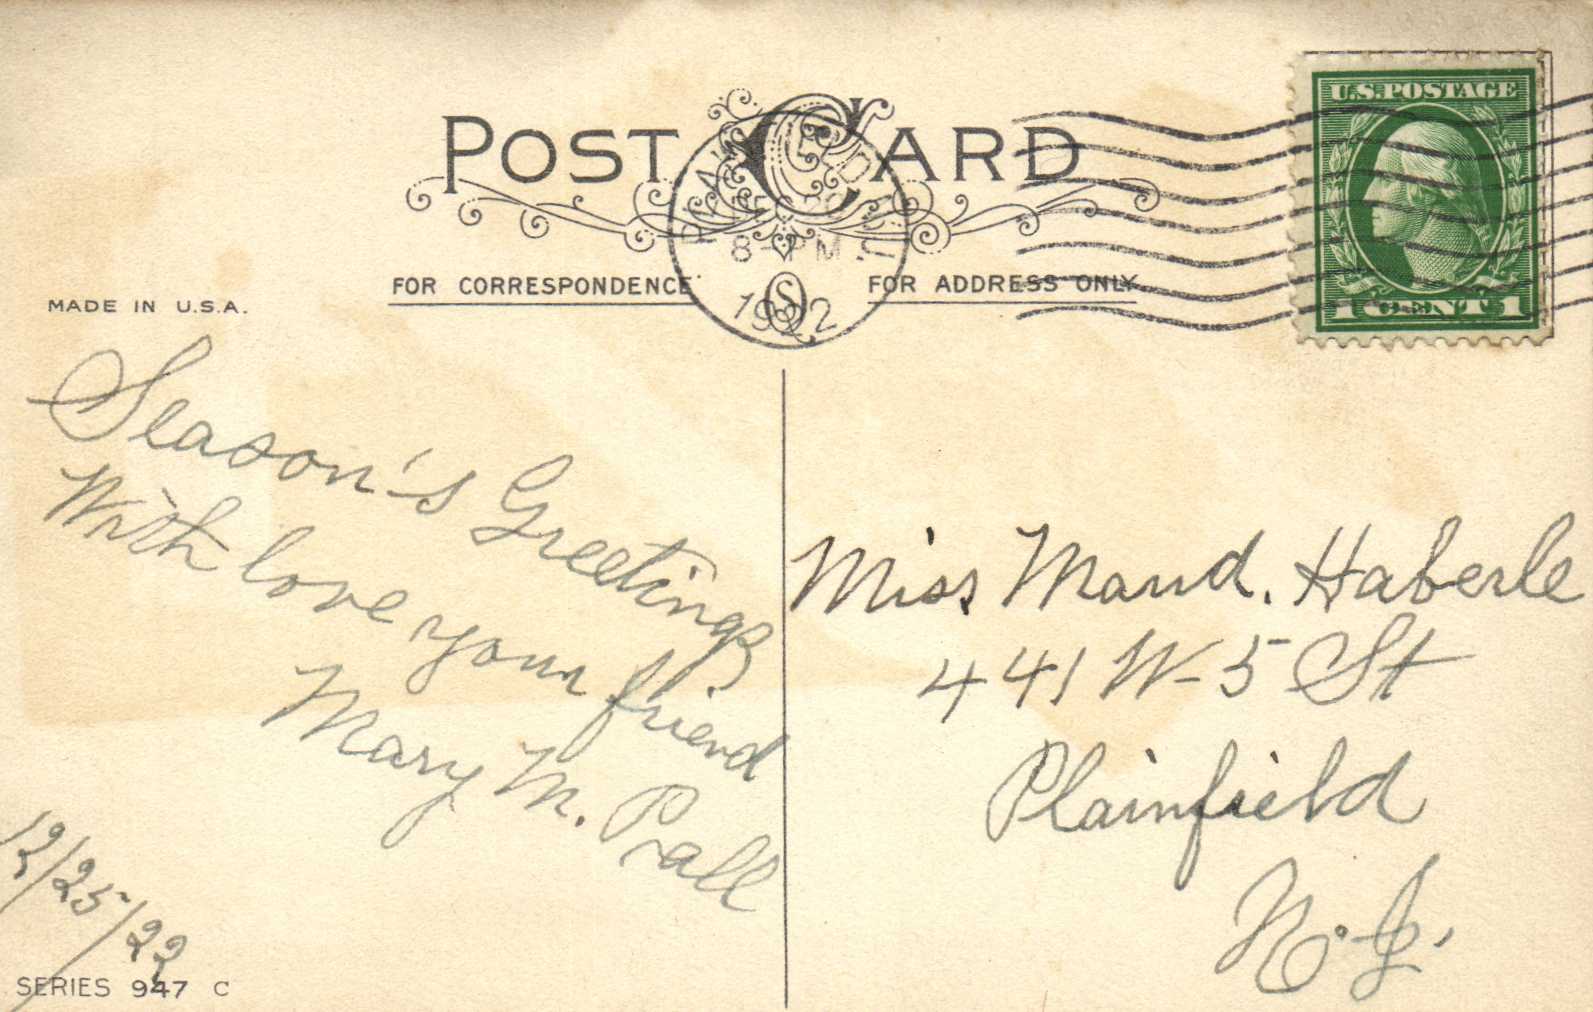 POST CARD
U.S. POSTAGE
1 CENT 1
8-PM
1922
FOR CORRESPONDENCE
FOR ADDRESS ONLY
MADE IN U.S.A.
Season's Greetings
With love your friend
Mary M. Prall
12/25/22
SERIES 947 C
Miss Maud. Haberle
441 W-5 St
Plainfield
N.J.